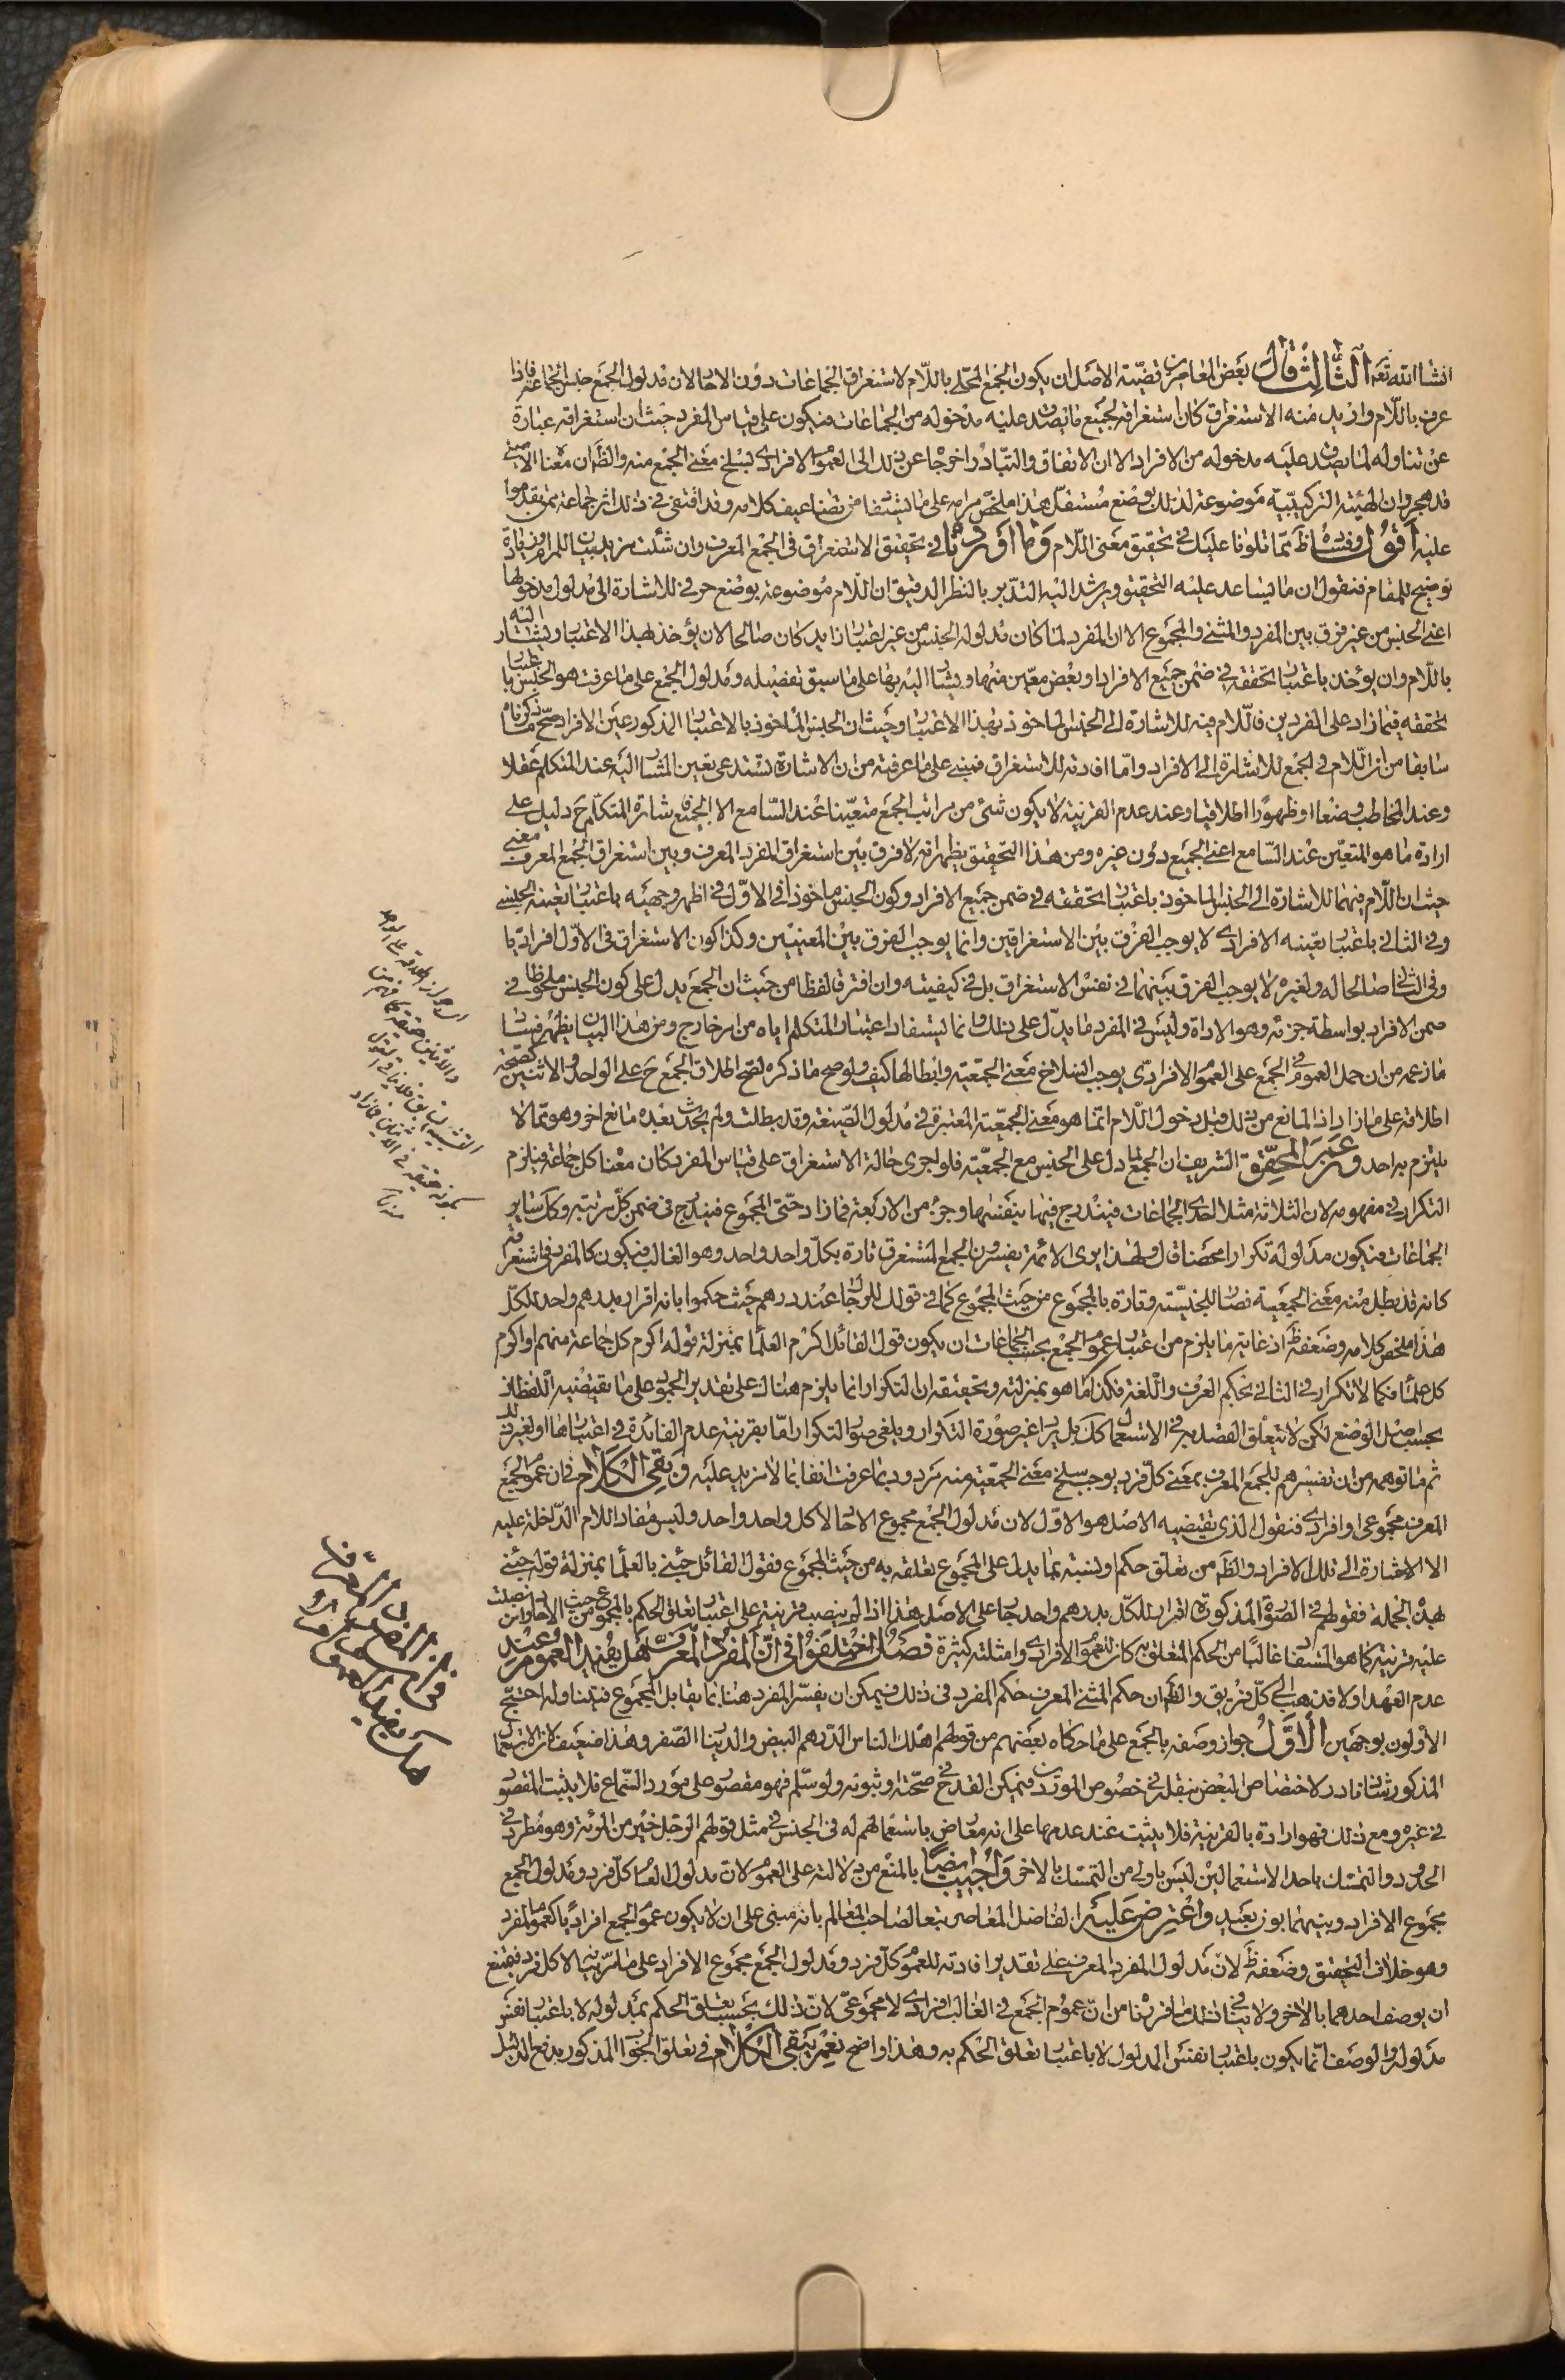 انشاالله تعم الثالث قال بعض المعاصرين قضيّة الاصل ان يكون الجمع المحلّى باللّام لاستغراق الجماعات دون الاحاد لان مدلول الجمع جنس الجماعة فاذا
عرف باللّام واريد منه الاستغراق كان استغراقه لجميع ما يصدق عليه مدخوله من الجماعات فيكون على قياس المفرد حيث ان استغراقه عبارة
عن تناوله لما يصدق عليه مدخوله من الافراد الا ان الاتفاق والتبادر اخرجا عن ذلك الى العموم الافرادى لسلخ معنى الجمع منه والظ ان معناه الاصلى
قد هجر وان الهيئة التركيبيّة موضوعة لذلك بوضع مستقل هذا ملخّص مرامه على ما يستفاد من تضاعيف كلامه وقد اقتفى فى ذلك اثر جماعة ممن تقدموا
عليه اقول وفساده ظ ممّا تلونا عليك فى تحقيق معنى اللّام وما اوردنا فى تحقيق الاستغراق فى الجمع المعرف وان شئت مزيد بيان للمرام وزيادة
توضيح للمقام فنقول ان ما يساعد عليه التحقيق ويرشد اليه التدّبر بالنظر الدقيق ان اللّام موضوعة بوضع حرفى للاشارة الى مدلول مدخولها
اعنى الجنس من غير فرق بين المفرد والمثنى والمجموع الا ان المفرد لما كان مدلوله الجنس من غير اعتبار زايد كان صالحا لان يؤخذ بهذا الاعتبار ويشار اليه
باللّام وان يؤخذ باعتبار تحققه فى ضمن جميع الافراد او بعض معيّن منها ويشار اليه بها على ما سبق تفصيله ومدلول الجمع على ما عرفت هو الجنس باعتبار
تحققه فيما زاد على الفردين فاللّام فيه للاشارة الى الجنس الماخوذ بهذا الاعتبار وحيث ان الجنس الماخوذ بالاعتبار المذكور عين الافراد صحّ ما ذكرناه
سابقا من ان اللّام فى الجمع للاشارة الى الافراد وامّا افادته للاستغراق فمبنى على ما عرفته من ان الاشارة تستدعى تعين المشار اليه عند المتكلم عقلا
وعند المخاطب وضعا او ظهورا اطلاقيا وعند عدم القرينة لا يكون شئ من مراتب الجمع متعيّنا عند السّامع الا الجميع فاشارة المتكلّم ح دليل على
ارادة ما هو المتعيّن عند السّامع اعنى الجميع دون غيره ومن هذا التحقيق يظهر انه لا فرق بين استغراق المفرد المعرف وبين استغراق الجمع المعرف معنى
حيث ان اللّام فيهما للاشارة الى الجنس الماخوذ باعتبار تحققه فى ضمن جميع الافراد وكون الجنس ماخوذا فى الاوّل فى اظهر وجهيه باعتبار تعينه الجنسى
وفى الثانى باعتبار تعينه الافرادى لا يوجب الفرق بين الاستغراقين وانما يوجب الفرق بين المعنيين وكذا كون الاستغراق فى الاوّل افراديّا
وفى الثانى صالحا له ولغيره لا يوجب الفرق بينهما فى نفس الاستغراق بل فى كيفيته وان افترقا لفظا من حيث ان الجمع يدل على كون الجنس ملحوظا فى
ضمن الافراد بواسطة جزئه وهو الاداة وليس فى المفرد ما يدّل على ذلك وانما يستفاد اعتبار المتكلم اياه من امر خارج ومن هذا البيان يظهر فساد
ما زعمه من ان حمل العموم فى الجمع على العموم الافرادّى يوجب انسلاخ معنى الجمعيّه وابطالها كيف ولو صح ما ذكره لصح اطلاق الجمع ح على الواحد والاثنين كصحّة
اطلاقه على ما زاد اذ المانع من ذلك قبل دخول اللّام انما هو معنى الجمعيّة المعتبرة فى مدلول الصّيغة وقد بطلت ولم يحدث بعده مانع اخر وهو ممّا لا
يلتزم به احد وعن المحقّق الشريف ان الجمع لما دل على الجنس مع الجمعيّة فلو اجرى حالة الاستغراق على قياس المفرد كان معناه كل جماعة فيلزم
التكرار فى مفهومه لان الثلاثة مثلا احدى الجماعات فيندرج فيها بنفسها وجزء من الاربعة فما زاد حتّى المجموع فيندرج فى ضمن كلّ مرتبة وكل ساير
الجماعات فيكون مدلوله تكرارا محضا قال ولهذا يرى الائمّة يفسرون الجمع المستغرق تارة بكلّ واحد واحد وهو الغالب فيكون كالمفرد فى استغراقه
كانه قد بطل منه معنى الجمعية نصّا للجنسيّة وتارة بالمجموع من حيث المجموع كما فى قولك للرجال عندى درهم حيث حكموا بانه اقرار بدرهم واحد للكلّ
هذا ملخص كلامه وضعفه ظ اذ غاية ما يلزم من اعتبار عموم الجمع بحسب الجماعات ان يكون قول القائل اكرم العلما بمنزلة قوله اكرم كل جماعة منهم او اكرم
كل علما فكما لا تكرار فى الثانى بحكم العرف واللّغة فكذا ما هو بمنزلته وتحقيقه ان التكرار انما يلزم هناك على تقدير الجمود على ما يقتضيه اللّفظ
بحسب اصل الوضع لكن لا يتعلق القصد به فى الاستعمال كك بل يراد غير صورة التكرار ويلغى صور التكرار امّا بقرينة عدم الفائدة فى اعتبارها او لغير ذلك
ثم ما توهمه من ان تفسيرهم للجمع المعرف بمعنى كلّ فرد يوجب سلخ معنى الجمعيّة منه مردود بما عرفت انفا بما لا مزيد عليه وبقى الكلام فى ان عموم الجمع
المعرف مجموعى او افرادى فنقول الذى تقتضيه الاصل هو الاوّل لان مدلول الجمع مجموع الاحاد لا كل واحد واحد وليس مفاد اللام الدّاخلة عليه
الا الاشارة الى تلك الافراد والظ من تعلق حكم او نسبة بما يدل على المجموع تعلقه به من حيث المجموع فقول القائل جئنى بالعلما بمنزلة قوله جئنى
بهذه الجملة فقولهم فى الصورة المذكورة اقرار للكلّ بدرهم واحد جار على الاصل هذا اذا لم ينصب قرينة على اعتبار تعلق الحكم بالمجموع من حيث الاحاد وان نصبت
عليه قرينة كما هو المستفاد غالبا من الحكم المتعلق به كان للعموم الافرادى وامثلته كثيرة فصل اختلفوا فى انّ المفرد المعرف هل يفيد العموم وعند
عدم العهد اولا فذهب الى كلّ فريق والظ ان حكم المثنى المعرف حكم المفرد فى ذلك فيمكن ان يفسّر المفرد هنا بما يقابل المجموع فيتناوله احتجّ
الأولون بوجهين الاوّل جواز وصفه بالجمع على ما حكاه بعضهم من قولهم اهلك الناس الدّرهم البيض والدينار الصّفر وهذا ضعيف لان الاستعمال
المذكور شاذ نادر لاختصاص البعض بنقله فى خصوص المورد فيمكن القدح فى صحّته او ثبوته ولو سلّم فهو مقصور على مورد السّماع فلا يثبت المقصود
فى غيره ومع ذلك فهو ارادة بالقرينة فلا يثبت عند عدمها على انه معارض باستعمالهم له فى الجنس فى مثل قولهم الرّجل خير من المرئة وهو مطرد فى
الحدود والتمسّك باحد الاستعمالين ليس باولى من التمسّك بالاخر واجيب ايضا بالمنع من دلالته على العموم لان مدلول العام كلّ فرد ومدلول الجمع
مجموع الافراد وبينهما بون بعيد واعترض عليه الفاضل المعاصر تبعا لصاحب المعالم بانه مبنى على ان لا يكون عموم الجمع افراديّا كعموم المفرد
وهو خلاف التحقيق وضعفه ظ لان مدلول المفرد المعرف على تقدير افادته للعموم كلّ فرد ومدلول الجمع مجموع الافراد على ما مرّ بيانه لا كل فرد فيمتنع
ان يوصف احدهما بالاخر ولا ينافى ذلك ما قررنا من انّ عموم الجمع فى الغالب افرادى لا مجموعىّ لانّ ذلك بحسب تعلق الحكم بمدلوله لا باعتبار نفس
مدلوله والوصف انما يكون باعتبار نفس المدلول لا باعتبار تعلق الحكم به وهذا واضح نعم يبقى الكلام فى تعلق الجواب المذكور بدفع الدليل